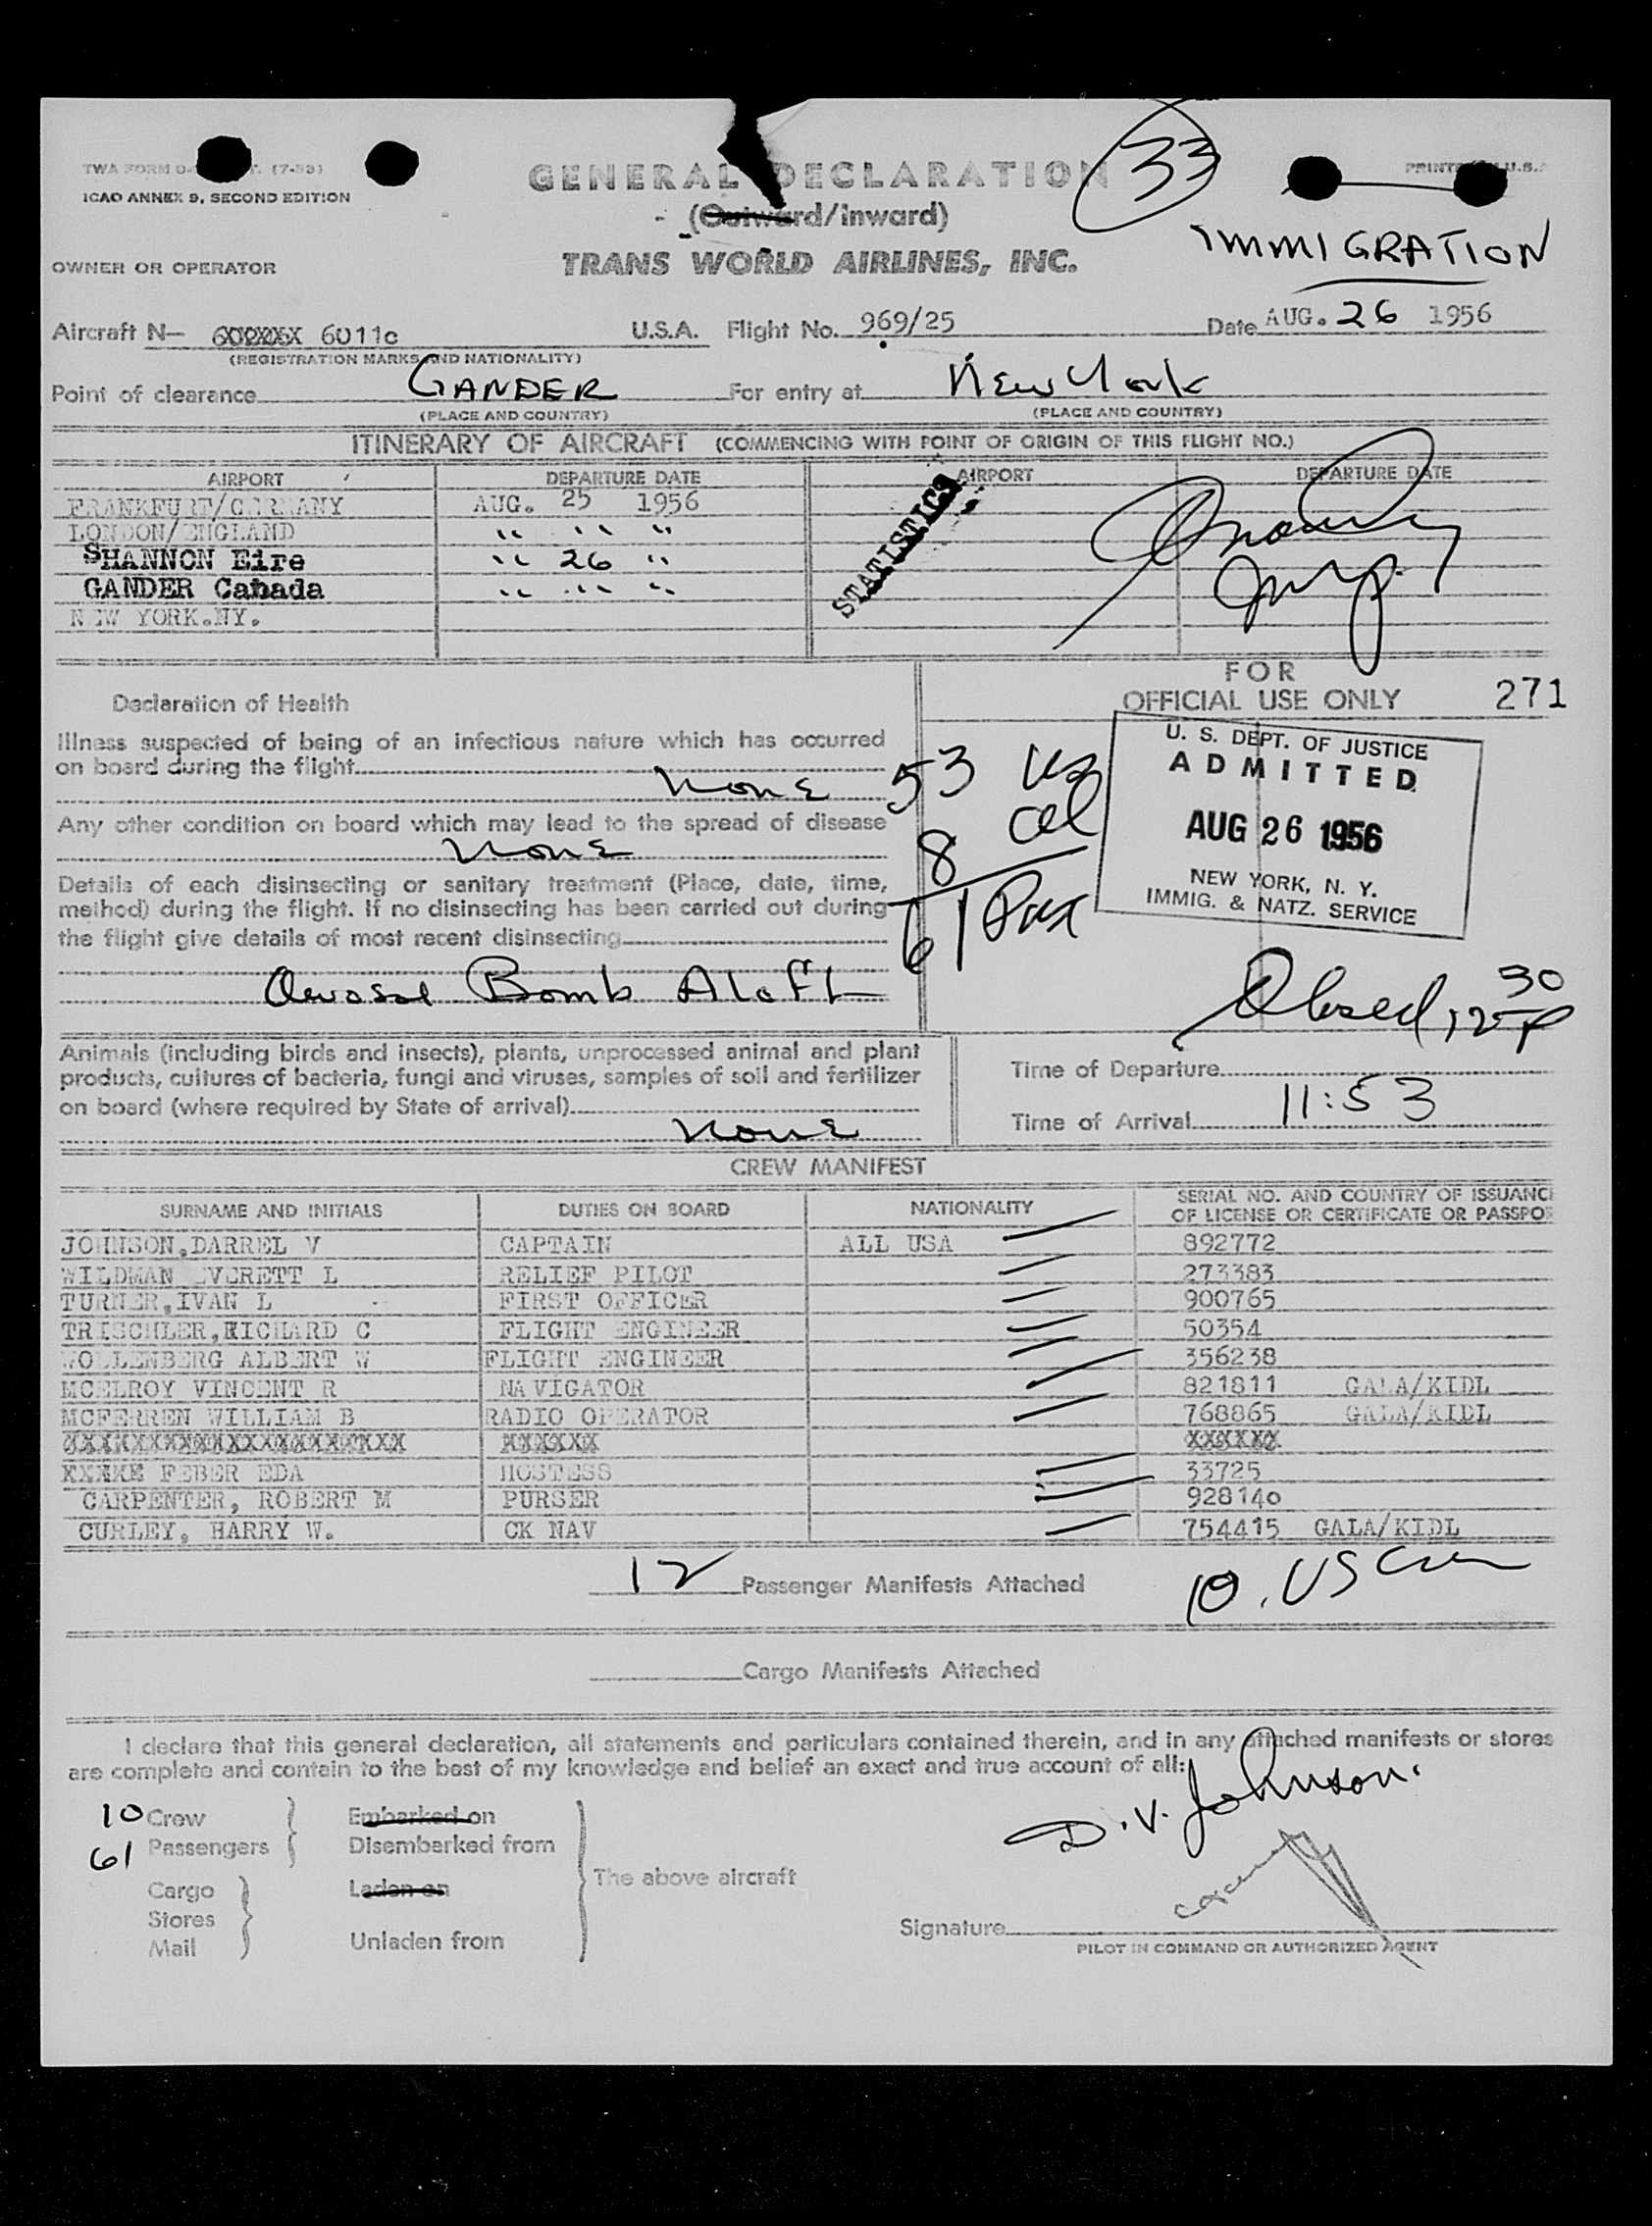 TWA FORM (7-53)
ICAO ANNEX 9, SECOND EDITION
GENERAL DECLARATION
(33)
PRINTED IN U.S.A.
(Outward/Inward)
IMMIGRATION
OWNER OR OPERATOR
TRANS WORLD AIRLINES, INC.
Aircraft N— 6011c U.S.A. Flight No. 969/25 Date AUG. 26 1956
(REGISTRATION MARKS AND NATIONALITY)
Point of clearance GANDER For entry at New York
(PLACE AND COUNTRY) (PLACE AND COUNTRY)
ITINERARY OF AIRCRAFT (COMMENCING WITH POINT OF ORIGIN OF THIS FLIGHT NO.)
AIRPORT DEPARTURE DATE AIRPORT DEPARTURE DATE
FRANKFURT/GERMANY AUG. 25 1956
LONDON/ENGLAND " " "
SHANNON Eire " 26 "
GANDER Canada " " "
NEW YORK.NY.
STATISTICS
FOR
OFFICIAL USE ONLY 271
Declaration of Health
Illness suspected of being of an infectious nature which has occurred
on board during the flight
None
Any other condition on board which may lead to the spread of disease
None
Details of each disinsecting or sanitary treatment (Place, date, time,
method) during the flight. If no disinsecting has been carried out during
the flight give details of most recent disinsecting
Aerosol Bomb Aloft
53 US
8 al
61 Pax
U. S. DEPT. OF JUSTICE
ADMITTED
AUG 26 1956
NEW YORK, N. Y.
IMMIG. & NATZ. SERVICE
Closed 12 30 P
Animals (including birds and insects), plants, unprocessed animal and plant
products, cultures of bacteria, fungi and viruses, samples of soil and fertilizer
on board (where required by State of arrival)
None
Time of Departure
Time of Arrival 11:53
CREW MANIFEST
SURNAME AND INITIALS DUTIES ON BOARD NATIONALITY SERIAL NO. AND COUNTRY OF ISSUANCE
OF LICENSE OR CERTIFICATE OR PASSPO
JOHNSON,DARREL V CAPTAIN ALL USA 892772
WILDMAN EVERETT L RELIEF PILOT 273383
TURNER,IVAN L FIRST OFFICER 900765
TRISCHLER,RICHARD C FLIGHT ENGINEER 50354
WOLLENBERG ALBERT W FLIGHT ENGINEER 356238
MCELROY VINCENT R NAVIGATOR 821811 GALA/KIDL
MCFERREN WILLIAM B RADIO OPERATOR 768865 GALA/KIDL
FEBER EDA HOSTESS 33725
CARPENTER, ROBERT M PURSER 928140
CURLEY, HARRY W. CK NAV 754415 GALA/KIDL
12 Passenger Manifests Attached
10. US
Cargo Manifests Attached
I declare that this general declaration, all statements and particulars contained therein, and in any attached manifests or stores
are complete and contain to the best of my knowledge and belief an exact and true account of all:
D.V. Johnson.
10 Crew Embarked on
61 Passengers Disembarked from
The above aircraft
Cargo Laden on
Stores
Mail Unladen from
Signature
PILOT IN COMMAND OR AUTHORIZED AGENT